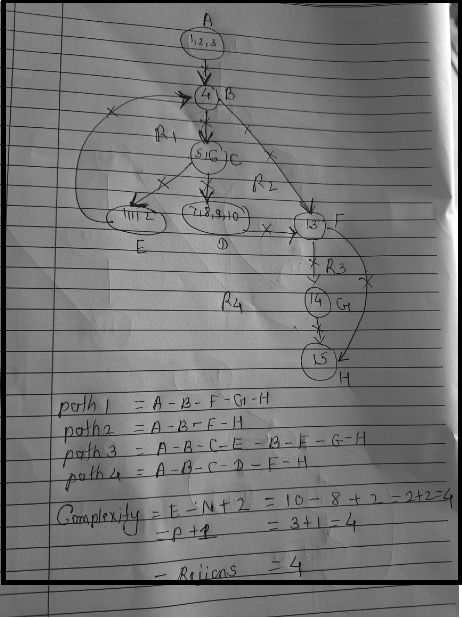 A
1,2,3
4 B
R1
5,6 C
R2
11,12
7,8,9,10
13 F
E
D
R3
R4
14 G
15
H
path 1 = A-B-F-G-H
path 2 = A-B-F-H
path 3 = A-B-C-E-B-F-G-H
path 4 = A-B-C-D-F-H
Complexity = E-N+2 = 10-8+2 = 2+2=4
-P+1 = 3+1=4
- Rijions = 4